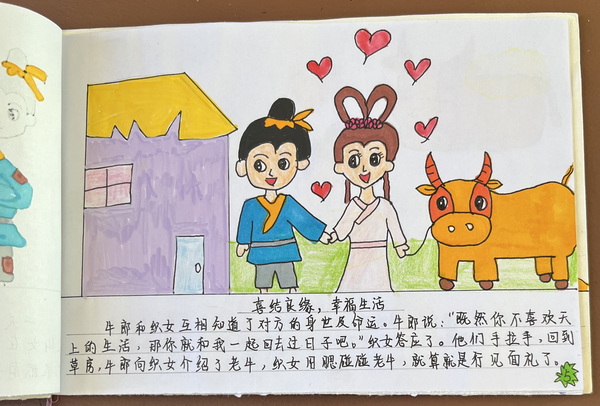 喜结良缘，幸福生活
牛郎和织女互相知道了对方的身世及命运。牛郎说："既然你不喜欢天
上的生活，那你就和我一起回去过日子吧。"织女答应了。他们手拉手，回到
草房，牛郎向织女介绍了老牛，织女用腮碰碰老牛，就算就是行见面礼了。